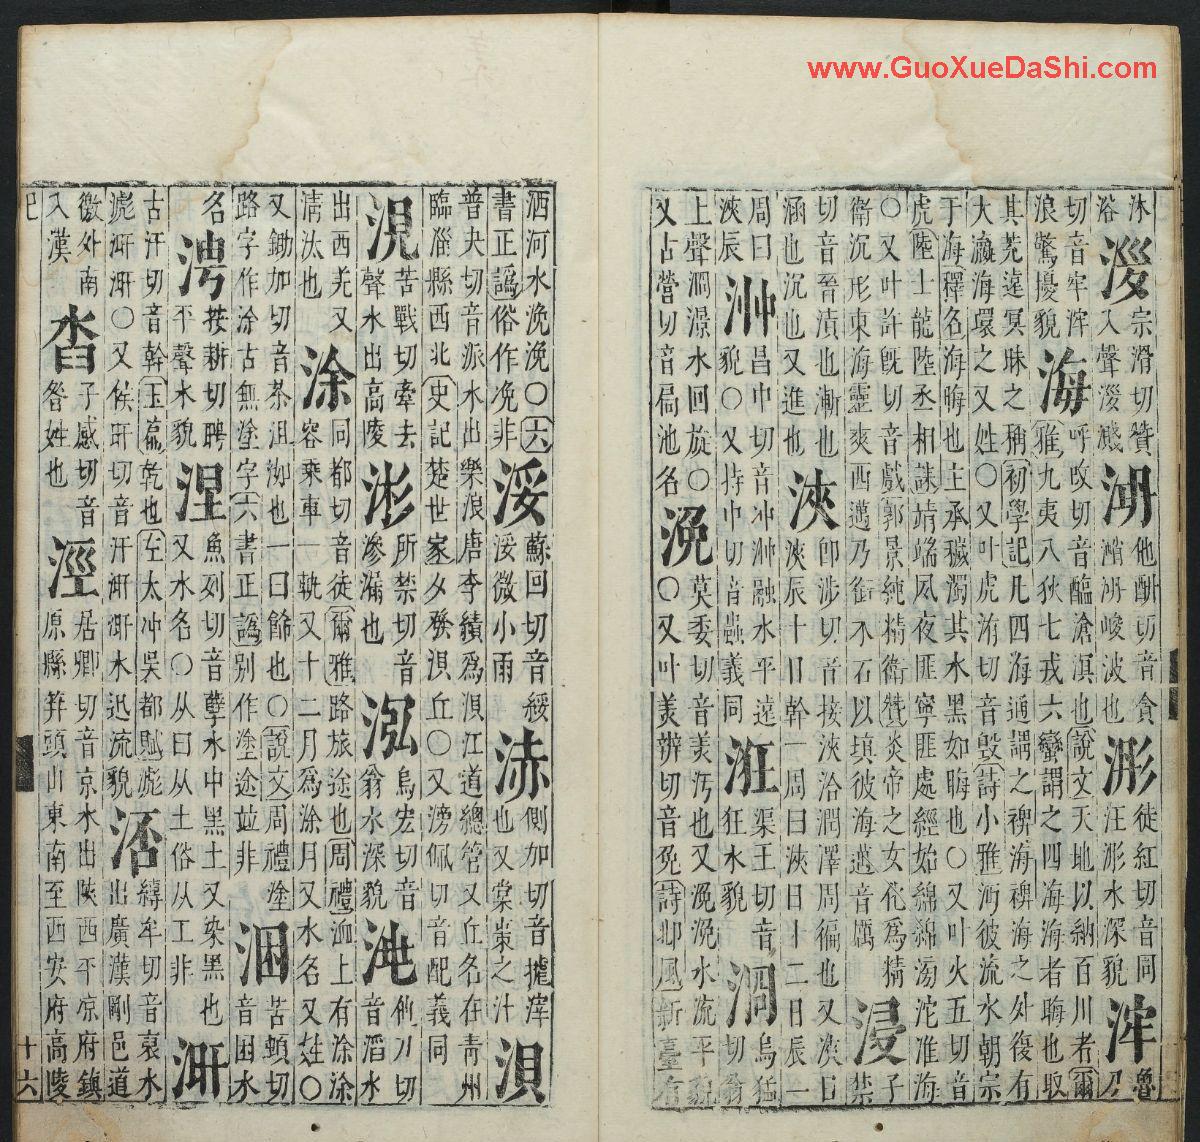 www.GuoXueDaShi.com
沐
浴
宗滑切贊
入聲
他酣切音貪
峻波也
浵
徒紅切音同
汪浵水深貌
浶
魯
刀
切音牢浶
浪驚擾貌
海
呼改切音醢滄溟也説文天地以納百川者爾
雅九夷八狄七戎六蠻謂之四海海者晦也取
其荒遠冥昧之稱初學記凡四海通謂之裨海裨海之外復有
大瀛海環之又姓○又叶虎洧切音毁詩小雅沔彼流水朝宗
于海釋名海晦也主承穢濁其水黑如晦也○又叶火五切音
虎陸士龍陸丞相誄靖端夙夜匪寧匪處經始綿綿淜沱淮海
○又叶許旣切音戲郭景純精衛贊炎帝之女化爲精
衛沉形東海靈爽西邁乃銜木石以塡彼海邁音厲
浸
子
禁
切音晉漬也漸也
涵也沉也又進也
浹
卽涉切音接浹洽潤澤周徧也又浹日
浹辰十日幹一周曰浹日十二日辰一
周曰
浹辰
浺
昌中切音冲浺融水平遠
貌○又持中切音蟲義同
渠王切音
狂水貌
浻
烏猛
切滃
上聲浻濙水回旋○
又古營切音扃池名
浼
莫委切音美汚也又浼浼水流平貌
○又叶美辦切音免詩邶風新臺有
洒河水浼浼○六
書正譌俗作凂非
浽
蘇回切音綏
浽微小雨
側加切音摣滓
也又棠棗之汁
浿
普夬切音派水出樂浪唐李績爲浿江道總管又丘名在青州
臨淄縣西北史記楚世家夕發浿丘○又滂佩切音配義同
涀
苦戰切牽去
聲水出高陵
所禁切音
滲漏也
浤
烏宏切音
翁水深貌
他刀切
音滔水
出西羌又
淸汰也
涂
同都切音徒爾雅路旅途也周禮洫上有涂涂
容乘車一軌又十二月爲涂月又水名又姓○
又鋤加切音茶沮洳也一曰飾也○說文周禮塗
路字作涂古無塗字六書正譌别作塗途竝非
涃
苦頓切
音困水
名
涄
按耕切聘
平聲水貌
涅
魚列切音孽水中黑土又染黑也
又水名○从曰从土俗从工非
涆
古汗切音幹玉篇乾也左太冲吳都賦滮
滮涆涆○又候旰切音汗涆涆水迅流貌
涪
縛牟切音裒水
出廣漢剛邑道
徼外南
入漢
子感切音
昝姓也
涇
居卿切音京水出陜西平凉府鎮
原縣笄頭山東南至西安府高陵
巳
十六